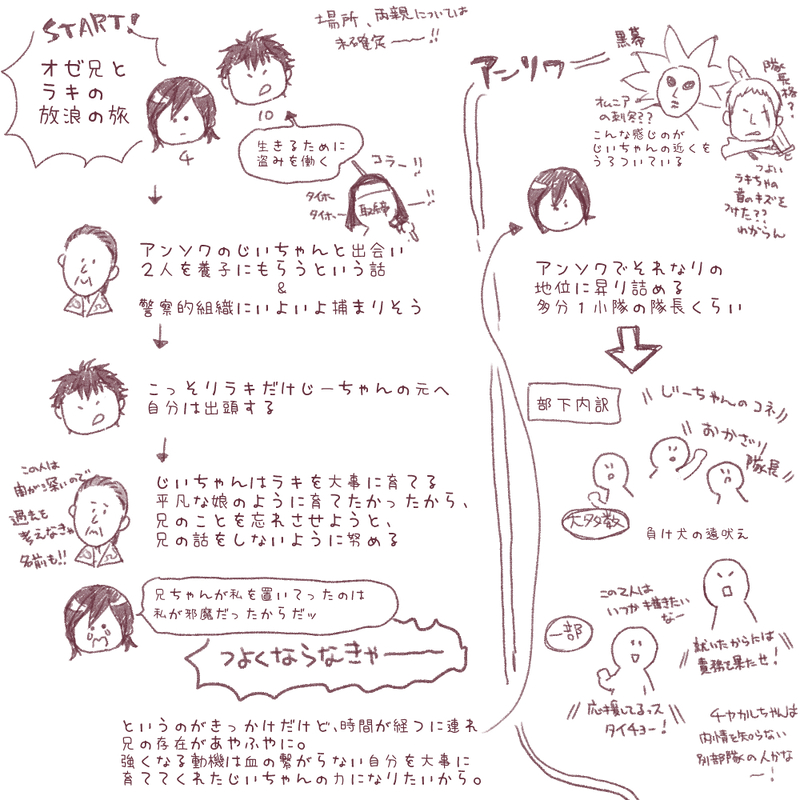 START!
オゼ兄と
ラキの
放浪の旅
場所、両親については
未確定〜〜!!
4
10
生きるために
盗みを働く
コラー!!
タイホー
タイホー
取締
アンソワのじいちゃんと出会い
2人を養子にもらうという話
&
警察的組織にいよいよ捕まりそう
こっそりラキだけじーちゃんの元へ
自分は出頭する
この人は
過去を
考えなきゃ
名前も!!
じいちゃんはラキを大事に育てる
平凡な娘のように育てたかったから、
兄のことを忘れさせようと、
兄の話をしないように努める
兄ちゃんが私を置いてったのは
私が邪魔だったからだッ
つよくならなきゃーーー
というのがきっかけだけど、時間が経つに連れ
兄の存在があやふやに。
強くなる動機は血の繋がらない自分を大事に
育ててくれたじいちゃんの力になりたいから。
アンソワ
黒幕
オムニア
の刺客??
こんな感じのが
じいちゃんの近くを
うろついている
隊長格?
つよい
ラキちゃの
首のキズを
つけた??
わからん
アンソワでそれなりの
地位に昇り詰める
多分1小隊の隊長くらい
部下内訳
じーちゃんのコネ
おかざり
隊長
大多数
負け犬の遠吠え
一部
この2人は
いつか描きたい
なー
就いたからには
責務を果たせ!
応援してるッス
タイチョー!
チヤカルちゃんは
内情を知らない
別部隊の人かな
〜!